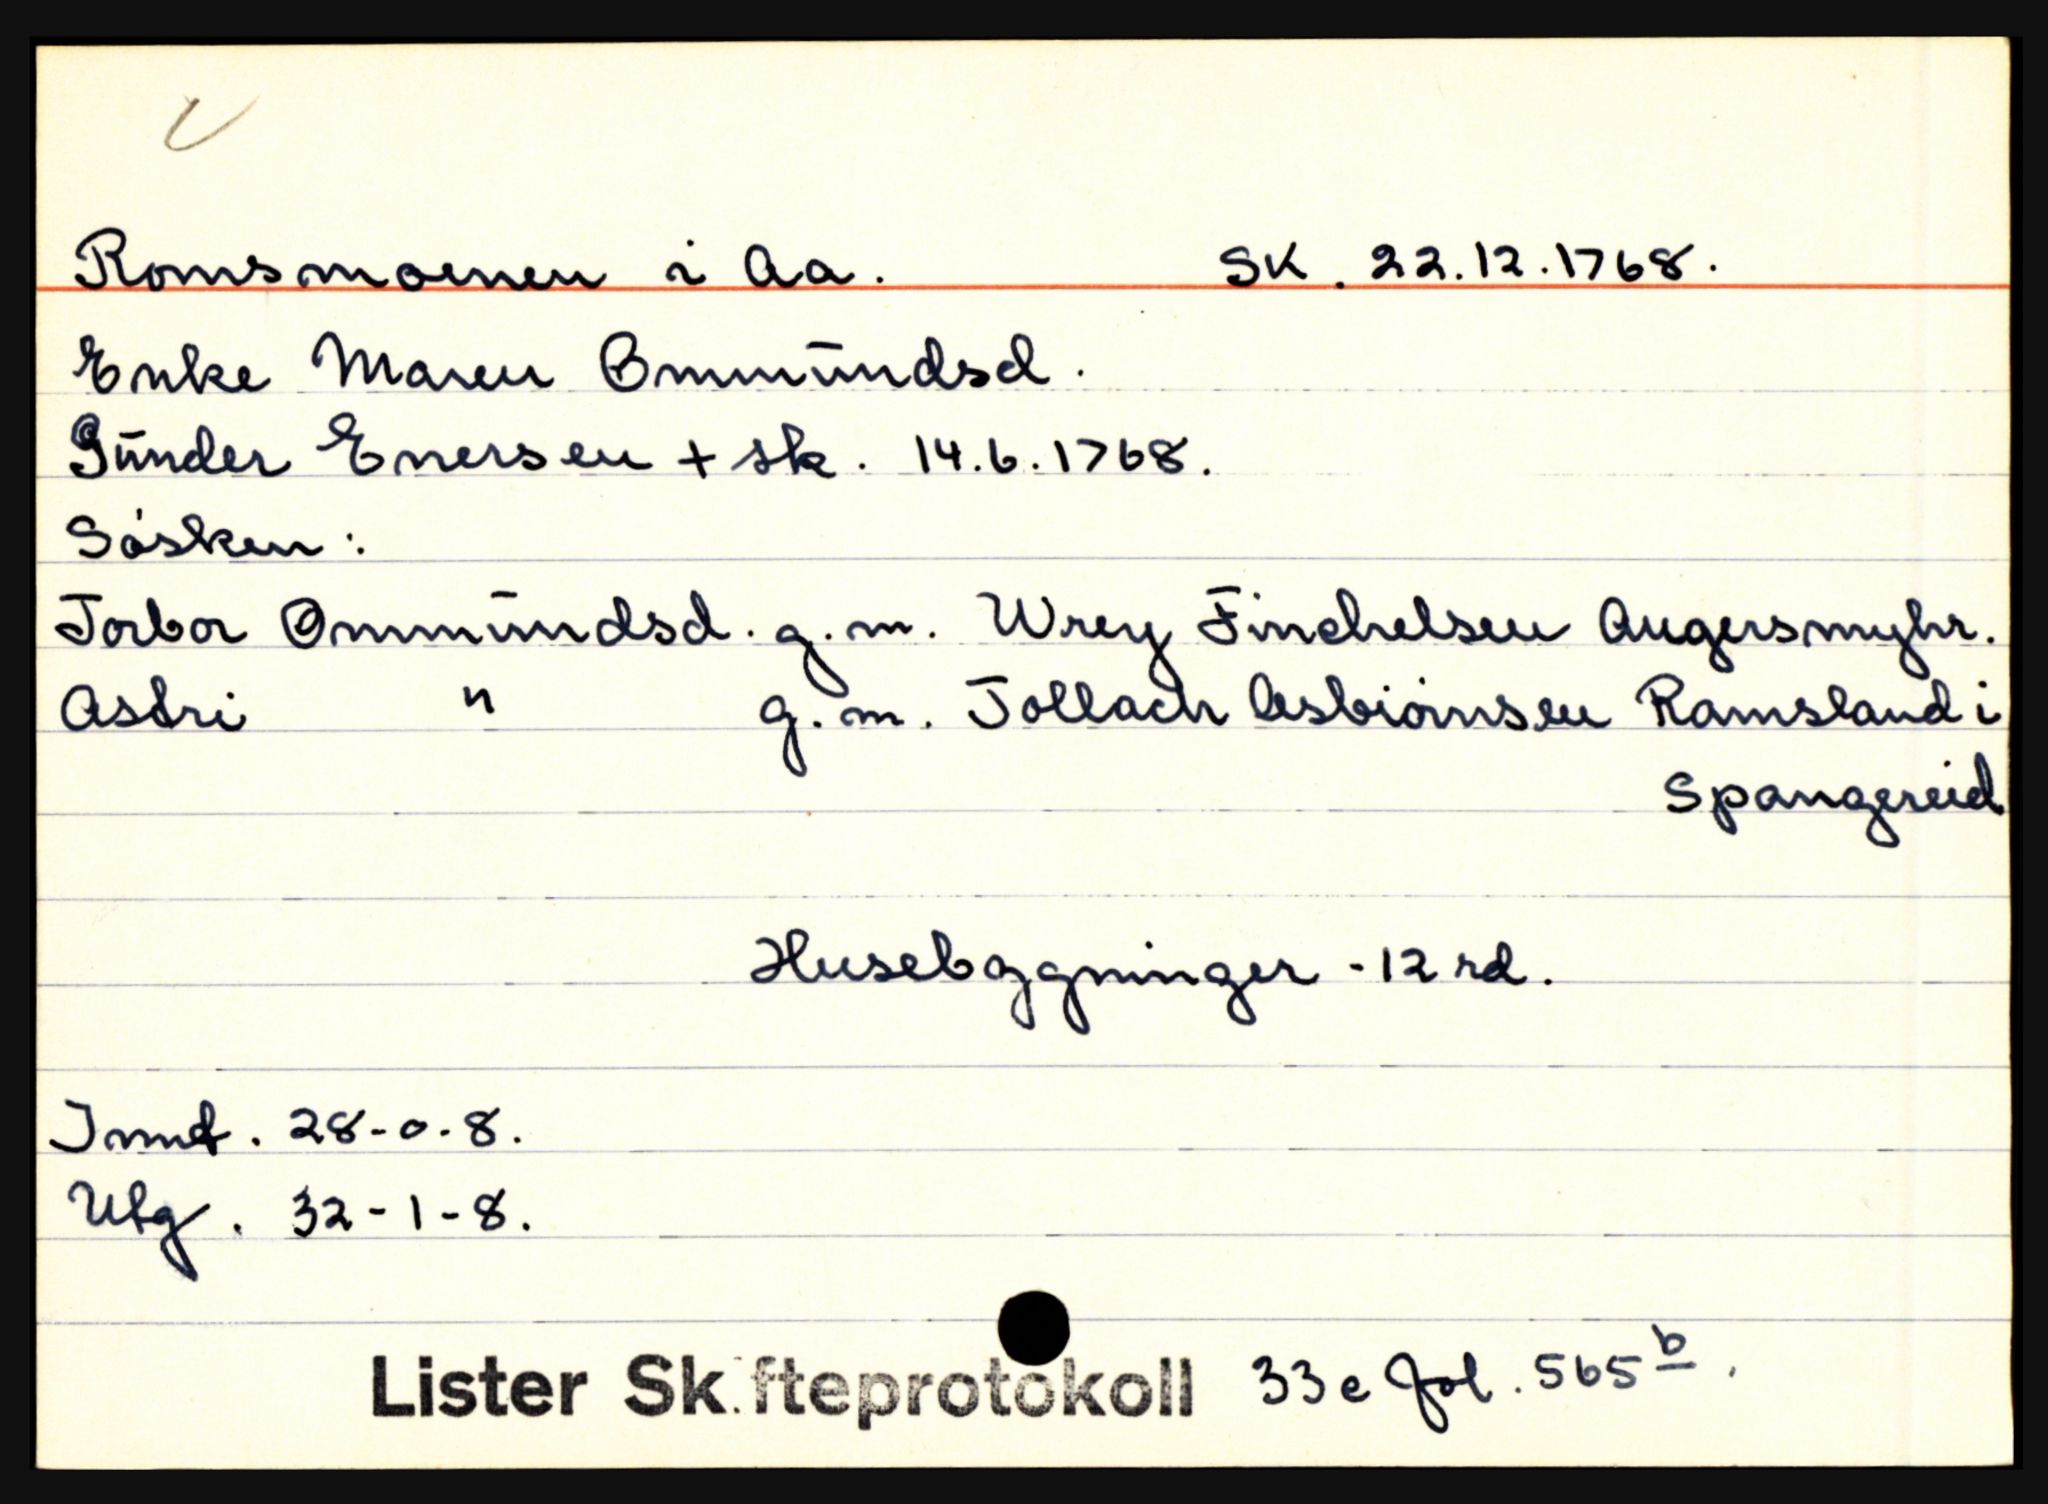 Romsmoenen i Aa. SK. 22.12.1768.
Enke Maren Ommundsd.
Gunder Enersen + sk. 14.6.1768.
Søsken:
Torbor Ommundsd. g.m. Wrey Finchelsen Augersmyhr.
Astri " g.m. Tollach Asbiørnsen Ramsland i
Spangereid
Husebygninger - 12 rd.
Innt. 28-0-8.
Utg. 32-1-8.
Lister Skifteprotokoll 33e fol. 565 b.